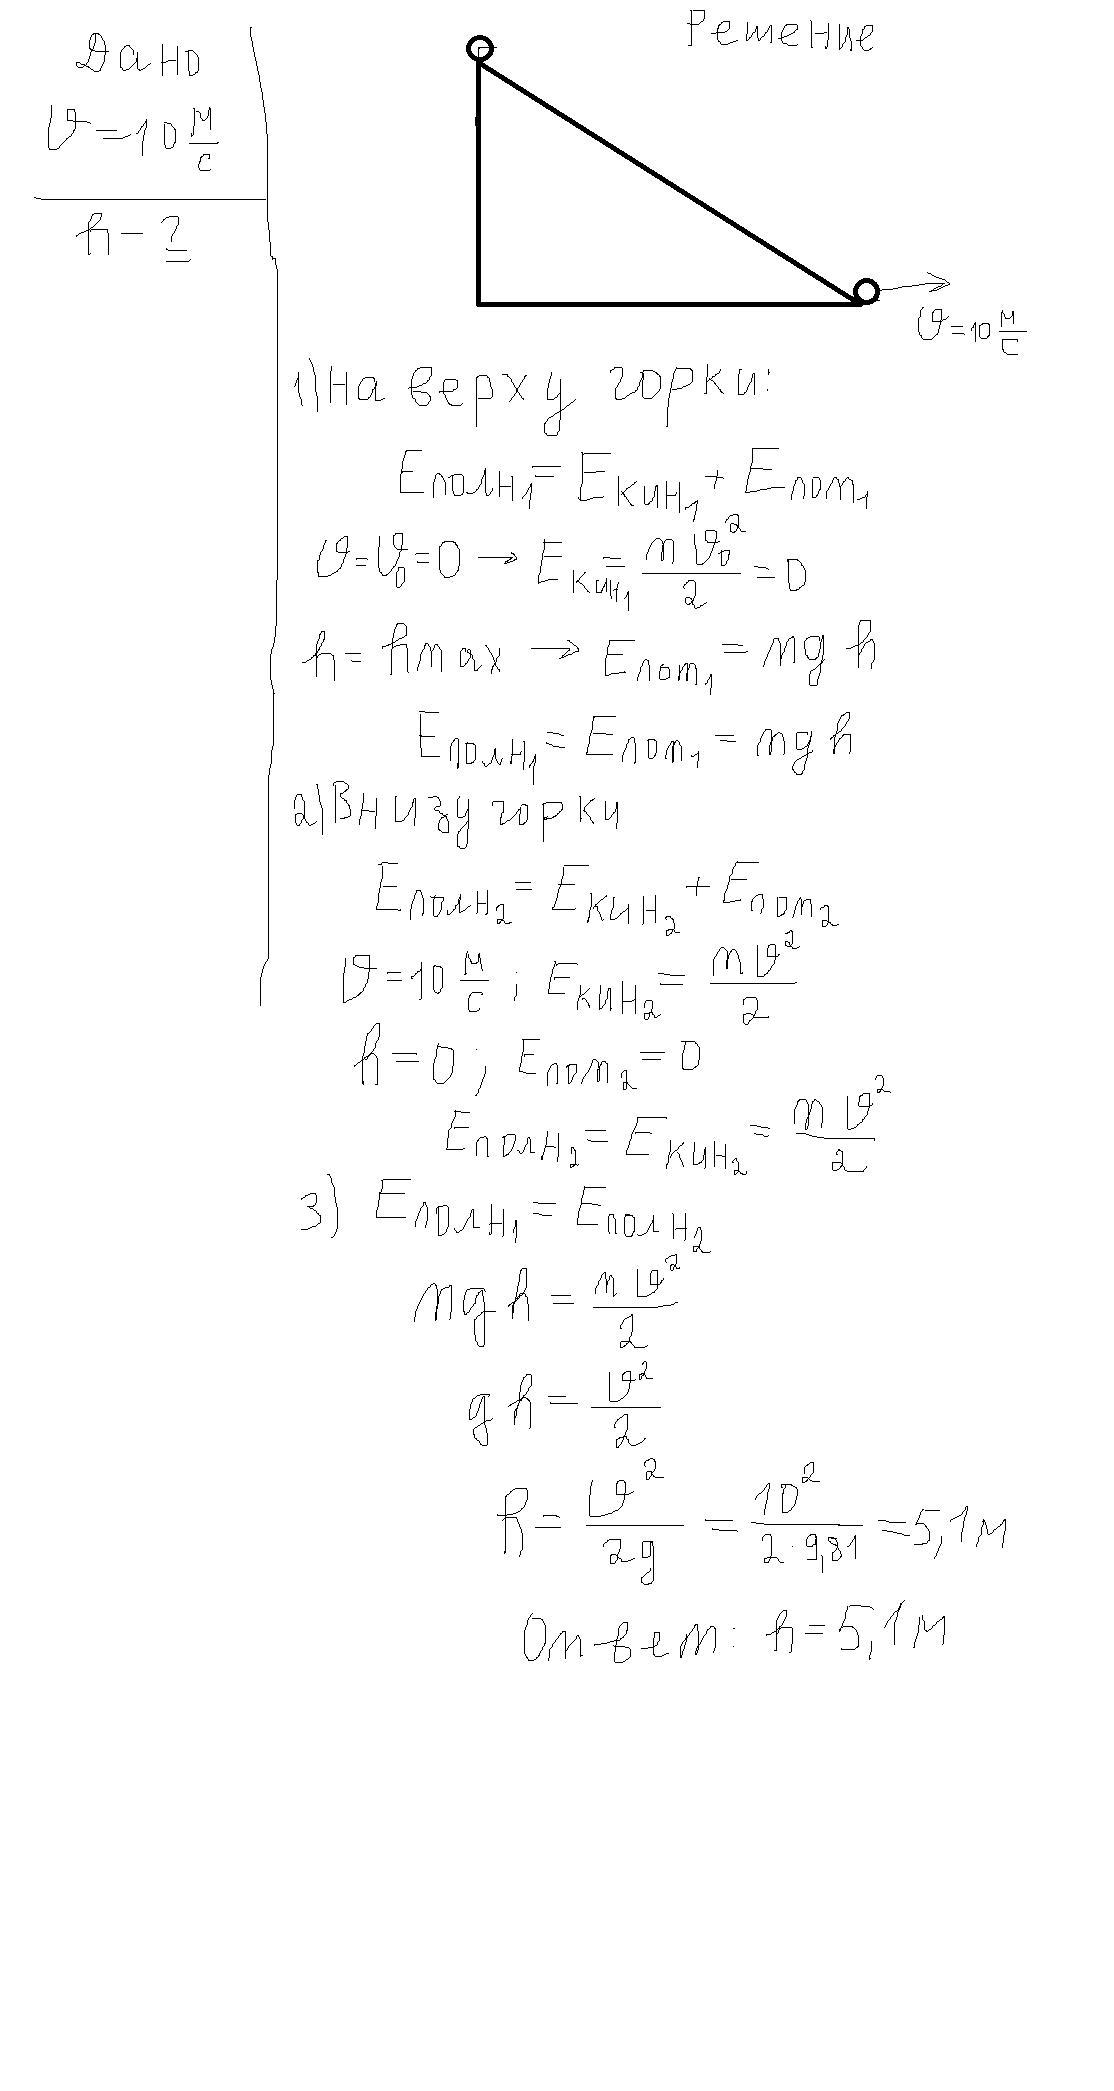 Дано
υ=10 м/с
h-?
Решение
υ=10 м/с
1) На верху горки:
Eполн₁=Eкин₁+Eпот₁
υ=υ₀=0→Eкин₁=mυ₀²/2=0
h=hmax→Eпот₁=mgh
Eполн₁=Eпот₁=mgh
2) Внизу горки
Eполн₂=Eкин₂+Eпот₂
υ=10 м/с; Eкин₂=mυ²/2
h=0; Eпот₂=0
Eполн₂=Eкин₂=mυ²/2
3) Eполн₁=Eполн₂
mgh=mυ²/2
gh=υ²/2
h=υ²/2g=10²/2·9,81=5,1м
Ответ: h=5,1м